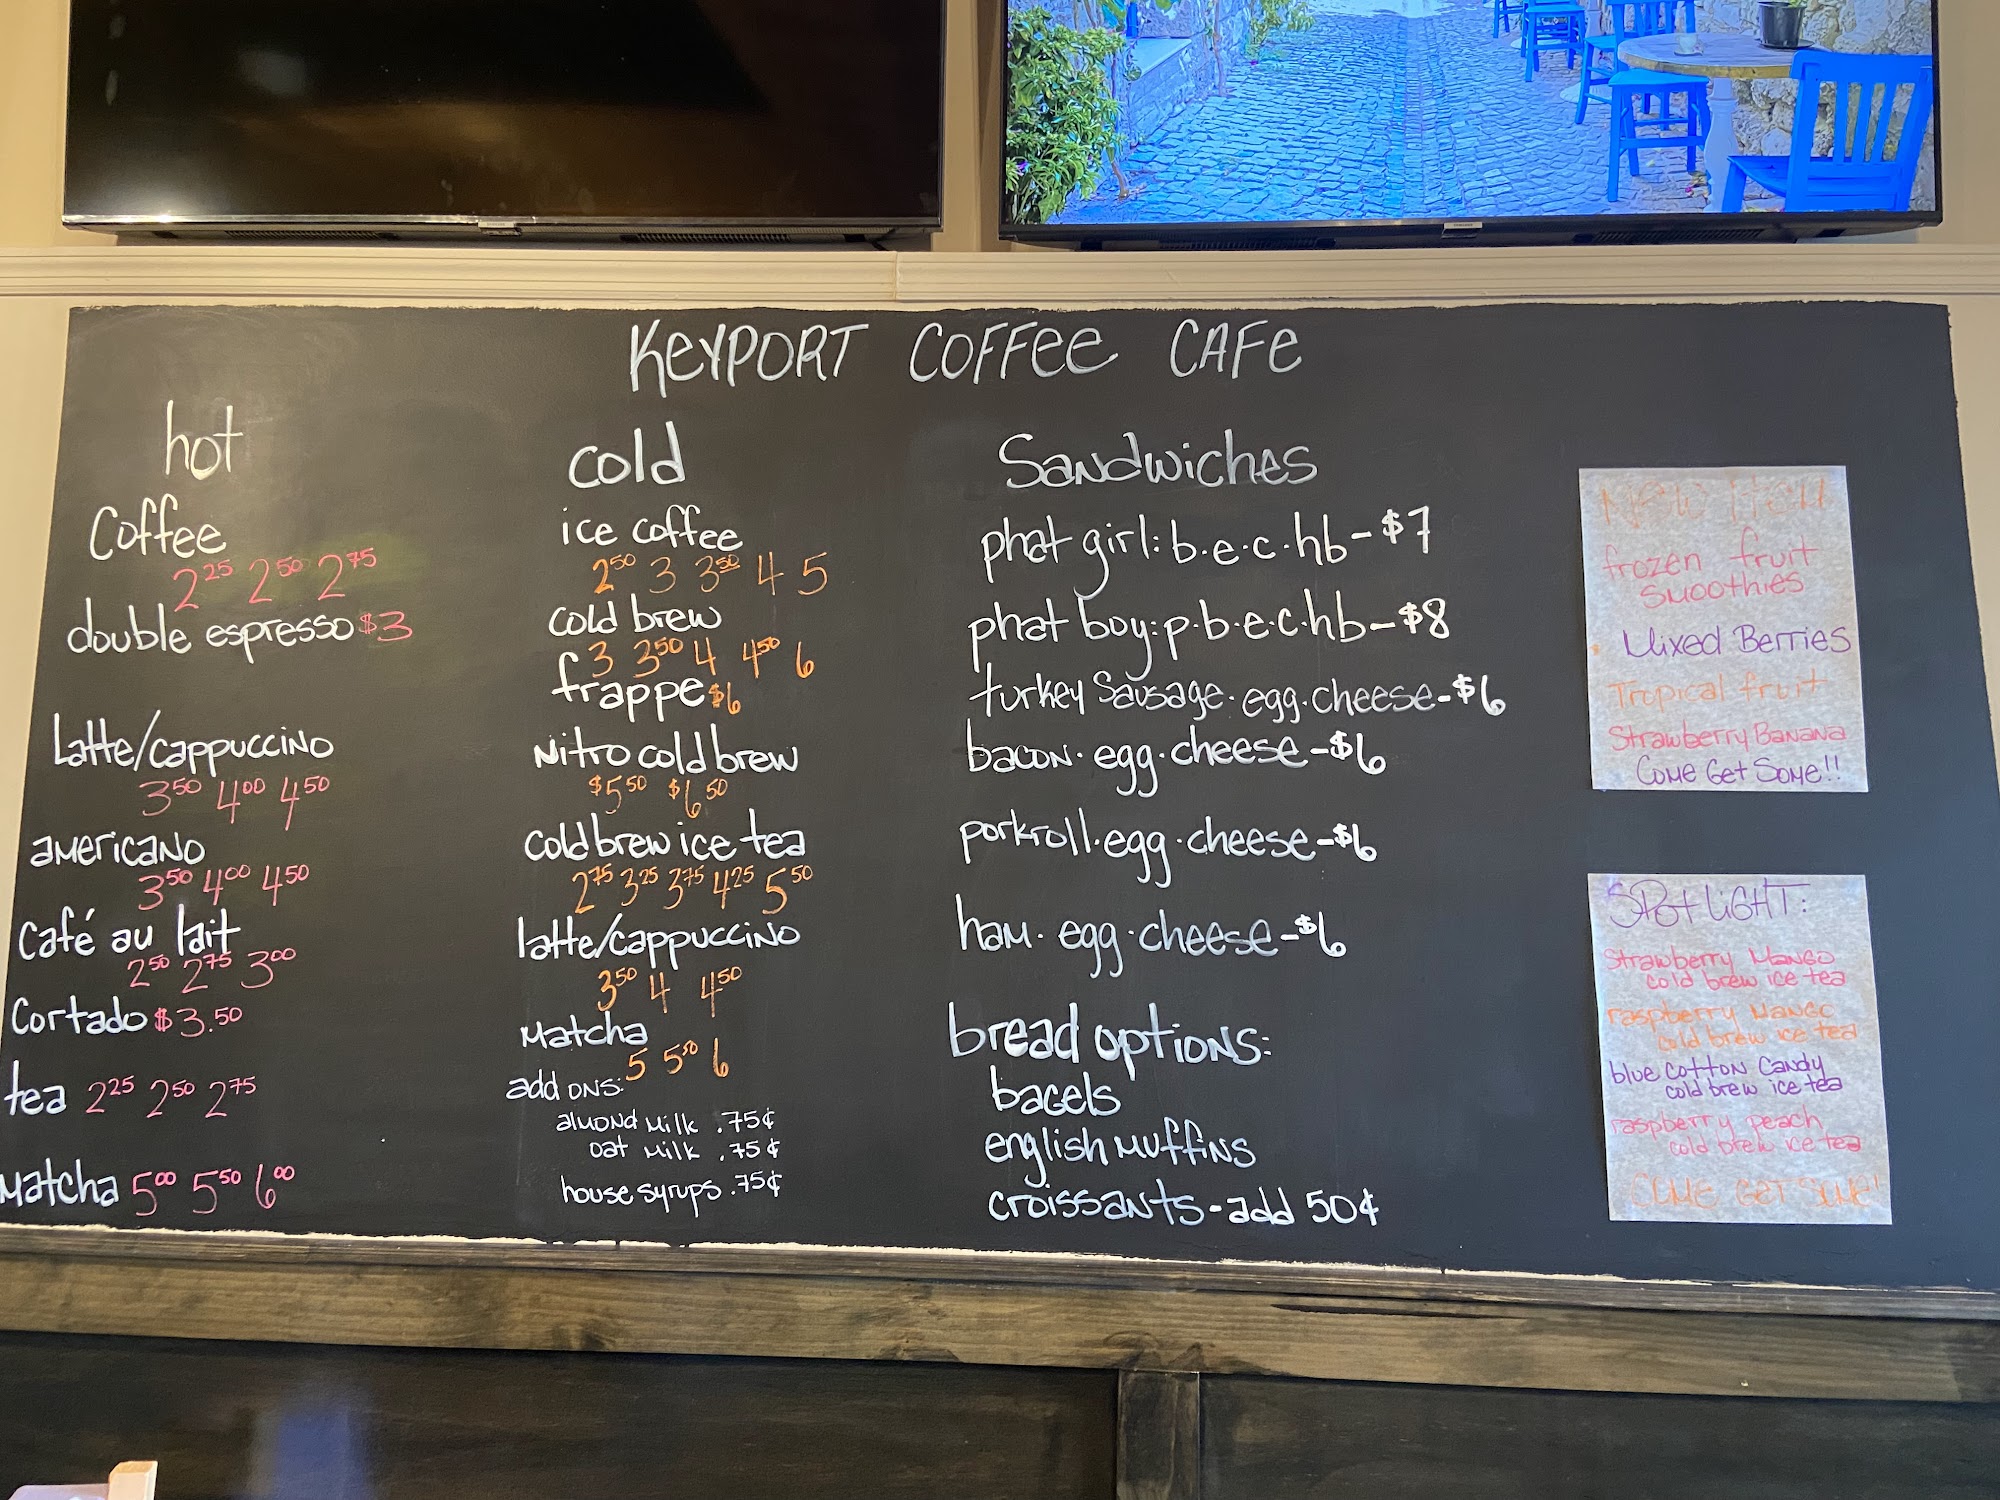 KEYPORT COFFEE CAFE
hot
Coffee
2.25 2.50 2.75
double espresso $3
Latte/cappuccino
3.50 4.00 4.50
americano
3.50 4.00 4.50
Café au lait
2.50 2.75 3.00
Cortado $3.50
tea 2.25 2.50 2.75
Matcha 5.00 5.50 6.00
cold
ice coffee
2.50 3 3.50 4 5
cold brew
3 3.50 4 4.50 6
frappe $6
Nitro cold brew
$5.50 $6.50
cold brew ice tea
2.75 3.25 3.75 4.25 5.50
latte/cappuccino
3.50 4 4.50
Matcha
5 5.50 6
add ons:
almond milk .75¢
oat milk .75¢
house syrups .75¢
Sandwiches
phat girl: b.e.c.hb-$7
phat boy: p.b.e.c.hb-$8
turkey Sausage.egg.cheese-$6
bacon.egg.cheese-$6
porkroll.egg.cheese-$6
ham.egg.cheese-$6
bread options:
bagels
english muffins
croissants-add 50¢
New Item
frozen fruit
smoothies
Mixed Berries
Tropical fruit
Strawberry Banana
Come Get Some!!
SPOTLIGHT:
Strawberry Mango
cold brew ice tea
raspberry Mango
cold brew ice tea
blue Cotton Candy
cold brew ice tea
raspberry peach
cold brew ice tea
COME GET SOME!